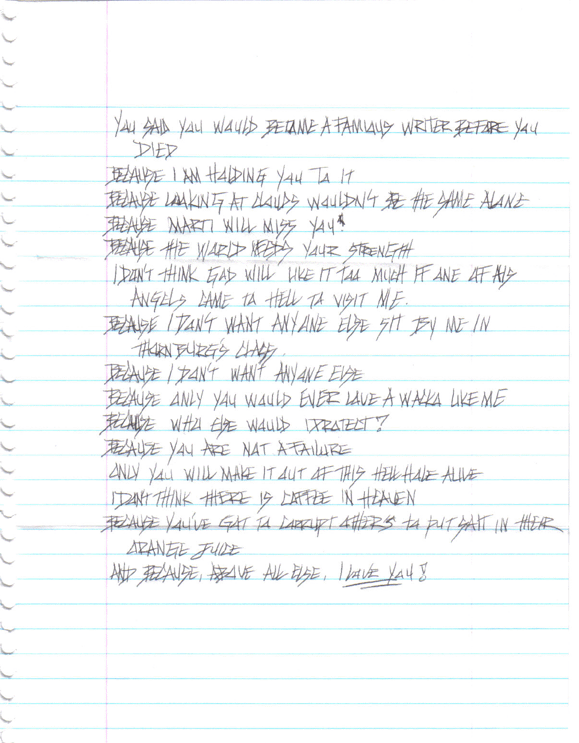 YOU SAID YOU WOULD BECOME A FAMOUS WRITER BEFORE YOU
DIED
BECAUSE I AM HOLDING YOU TO IT
BECAUSE LOOKING AT CLOUDS WOULDN'T BE THE SAME ALONE
BECAUSE MARTI WILL MISS YOU
BECAUSE THE WORLD NEEDS YOUR STRENGTH
I DON'T THINK GOD WILL LIKE IT TOO MUCH IF ONE OF HIS
ANGELS CAME TO HELL TO VISIT ME.
BECAUSE I DON'T WANT ANYONE ELSE SIT BY ME IN
THORNBURG'S CLASS.
BECAUSE I DON'T WANT ANYONE ELSE
BECAUSE ONLY YOU WOULD EVER LOVE A WALKA LIKE ME
BECAUSE WHO ELSE WOULD I PROTECT?
BECAUSE YOU ARE NOT A FAILURE
ONLY YOU WILL MAKE IT OUT OF THIS HELL HOLE ALIVE
I DON'T THINK THERE IS COFFEE IN HEAVEN
BECAUSE YOU'VE GOT TO CORRUPT OTHERS TO PUT SALT IN THEIR
ORANGE JUICE
AND BECAUSE, ABOVE ALL ELSE, I LOVE YOU!